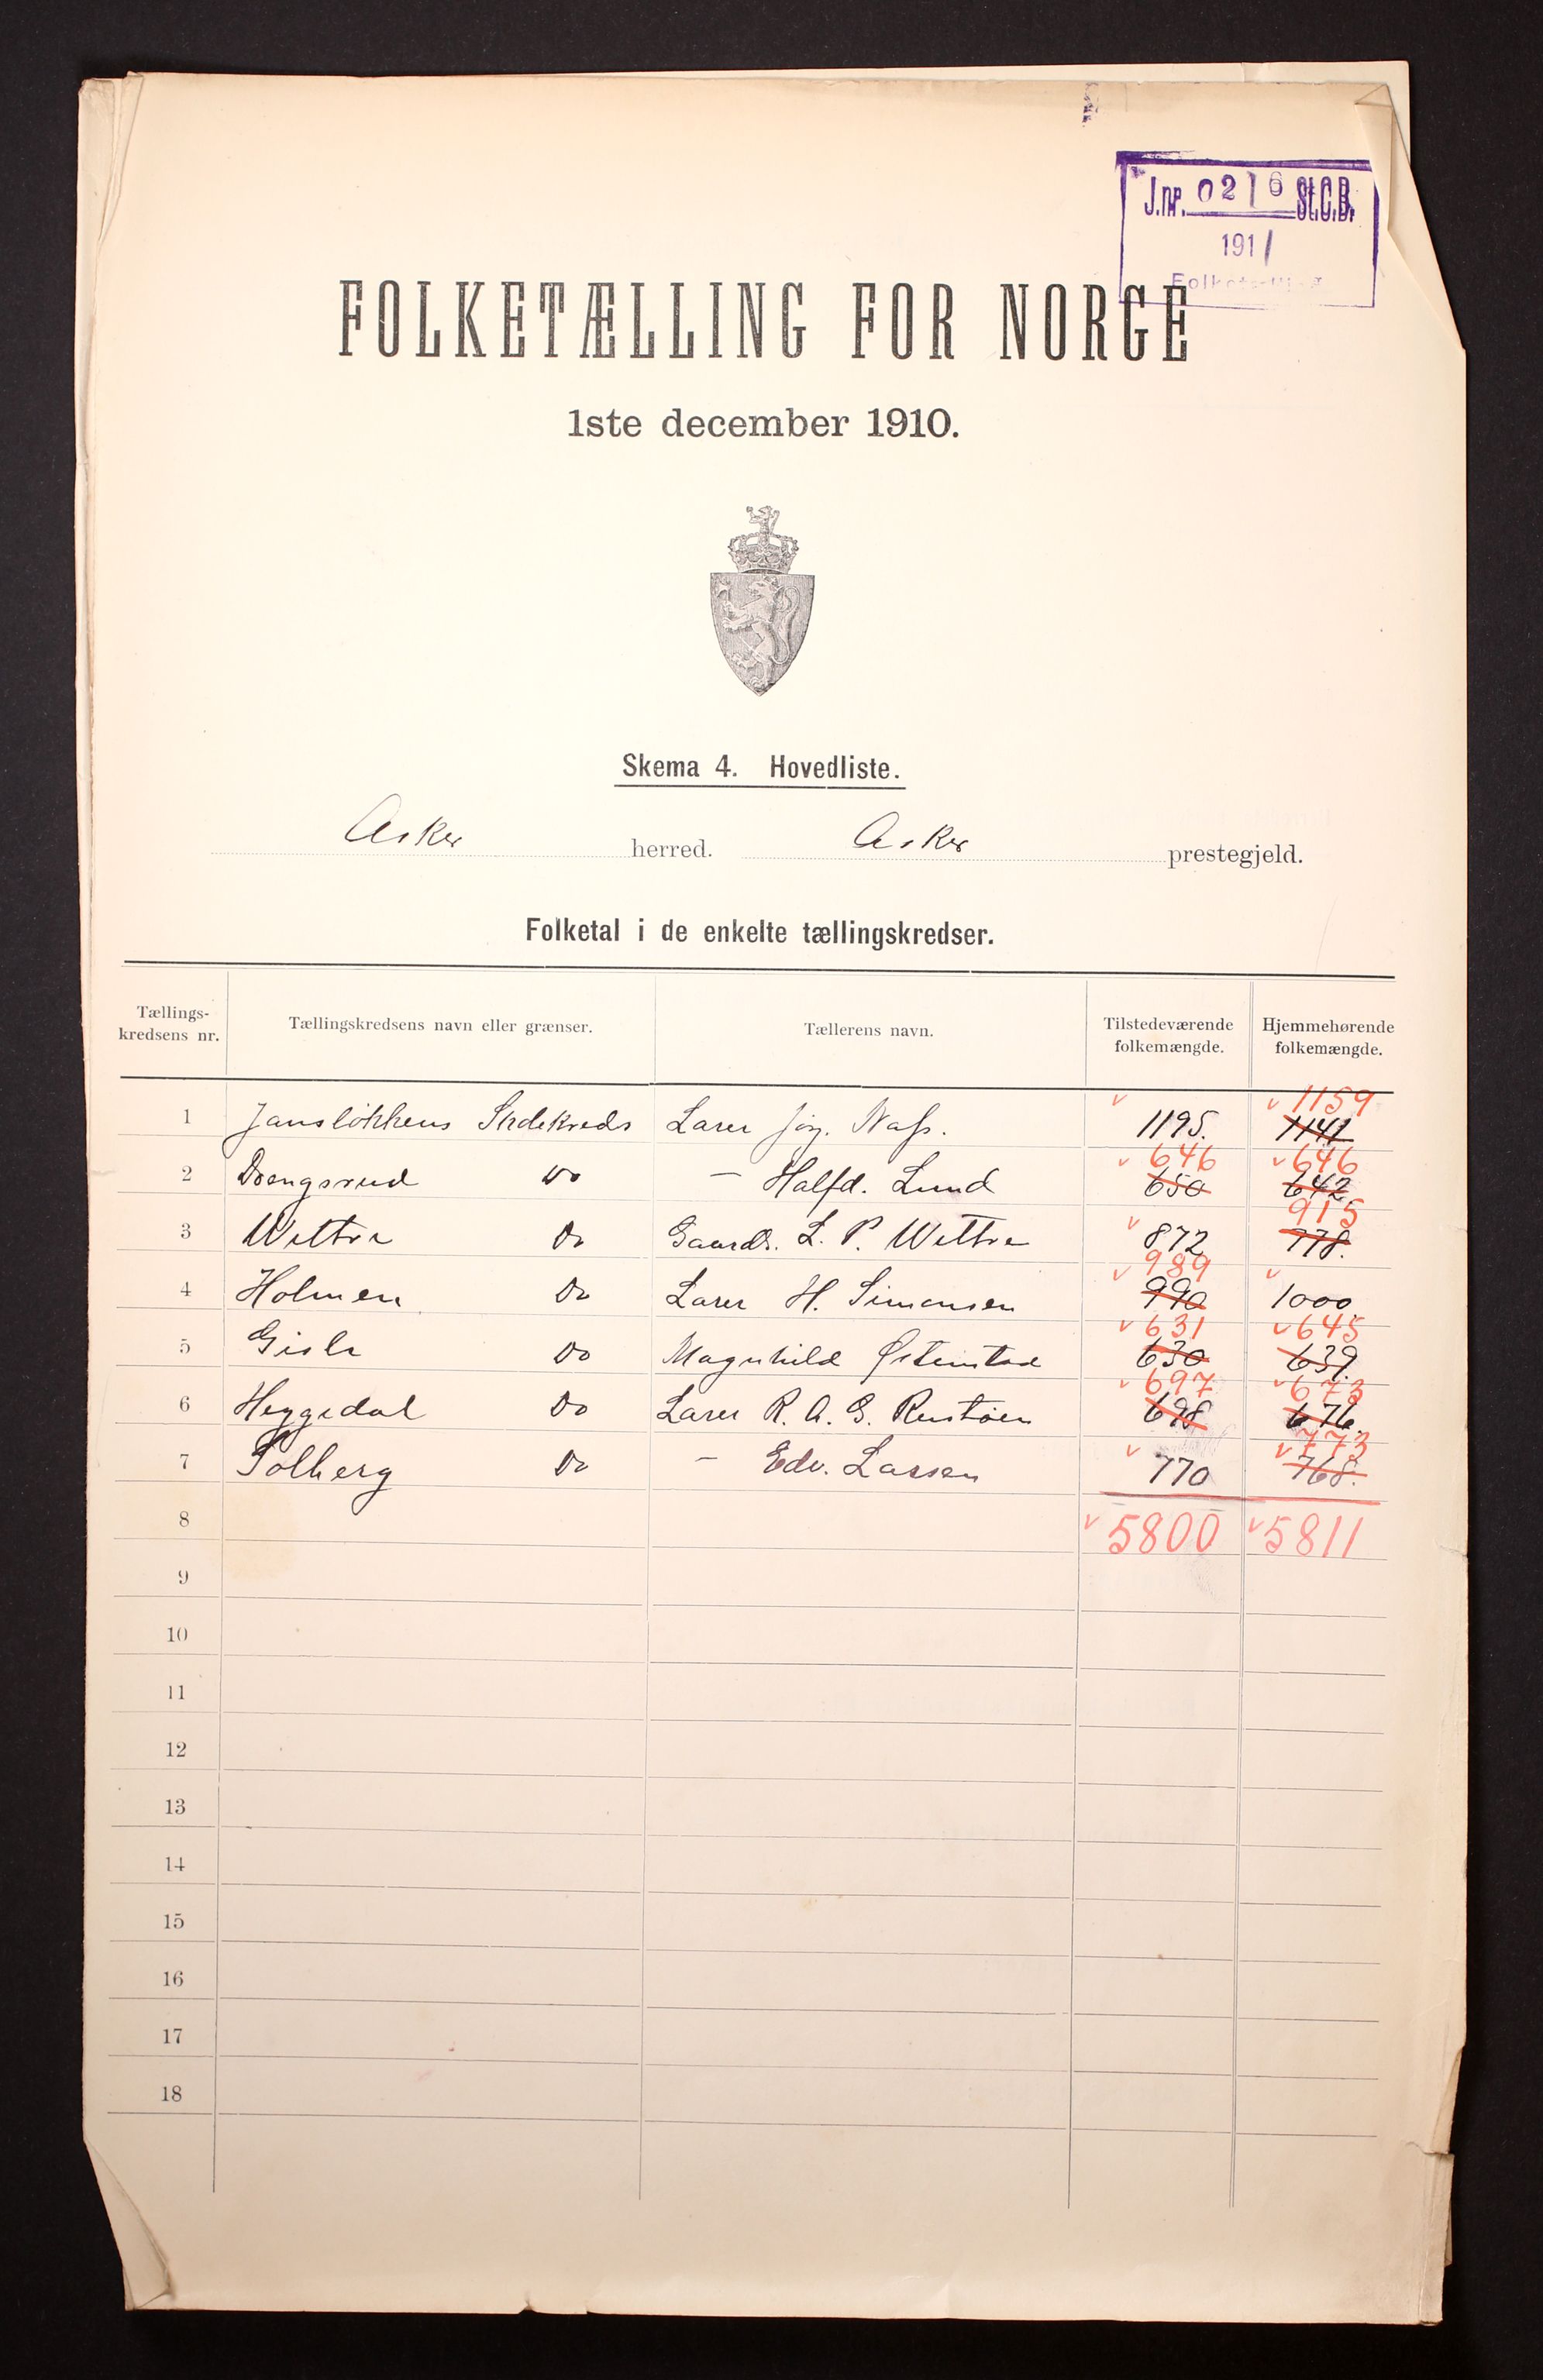 J.nr. 0216 St.C.B.
1911
FOLKETÆLLING FOR NORGE
1ste december 1910.
Skema 4. Hovedliste.
Asker herred. Asker prestegjeld.
Folketal i de enkelte tællingskredser.
Tællings-kredsens nr. Tællingskredsens navn eller grænser. Tællerens navn. Tilstedeværende folkemængde. Hjemmehørende folkemængde.
1159
1 Jansløkkens Skolekreds Lærer Jørg. Næss. 1195. 1141
646 646
2 Drengsrud Do — Halfd. Lund 650 642
915
3 Wettre Do Gaardb. L. P. Wettre 872 778.
989
4 Holmen Do Lærer H. Simonsen 990 1000
631 645
5 Gisle Do Magnhild Østenstad 630 639.
697 673
6 Heggedal Do Lærer R. A. G. Rustøen 698 676.
773
7 Solberg Do — Edv. Larsen 770 768.
8 5800 5811
9
10
11
12
13
14
15
16
17
18